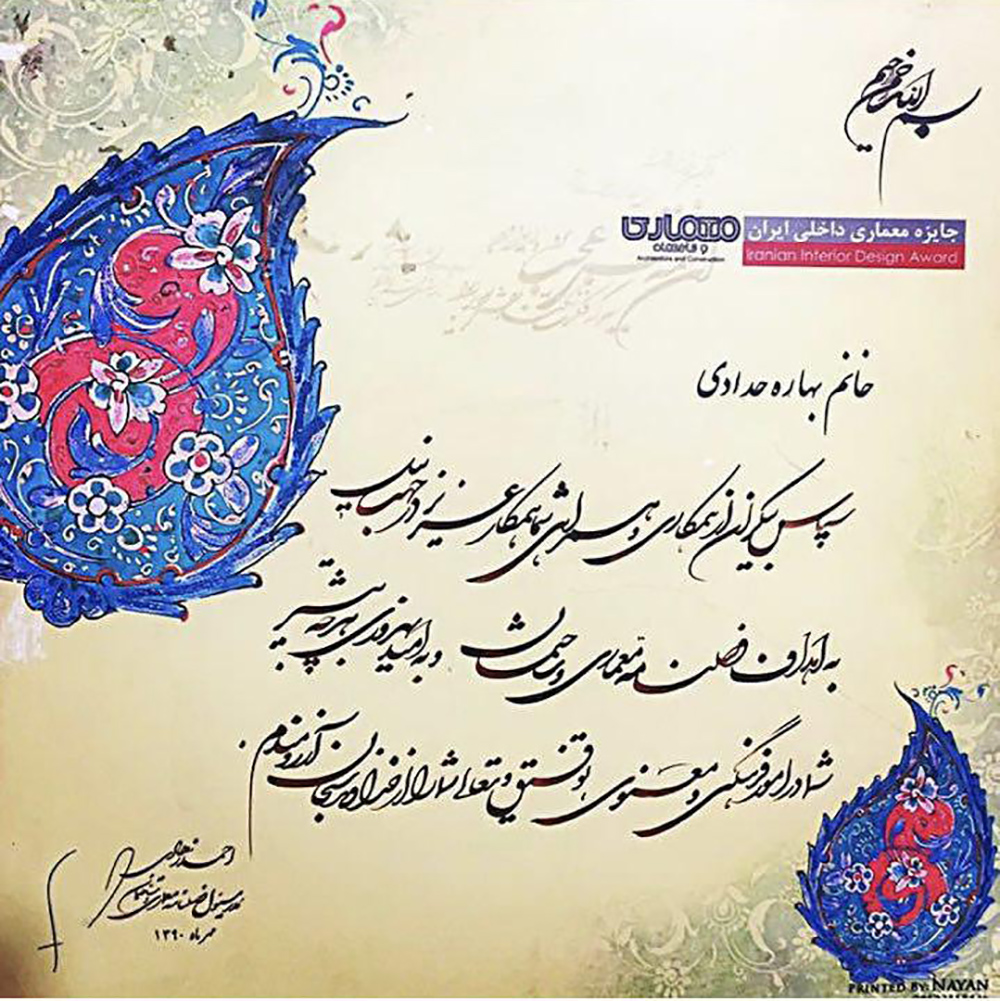 بسم الله الرحمن الرحیم
جایزه معماری داخلی ایران
Iranian Interior Design Award
معماری
و ساختمان
Architecture and Construction
خانم بهاره حدادی
سپاس بیکران از همکاری و همراهی شما همکار عزیز در جهت
به اهداف فصلنامه معماری و ساختمان و به امید بهروزی هر چه بیشتر
شما در امور فرهنگی و معنوی توفیق و تعالی شما را از خداوند سبحان آرزومندم.
احمد زهادی
مدیر مسئول فصلنامه معماری و ساختمان
مهر ماه ۱۳۹۰
PRINTED BY: NAYAN